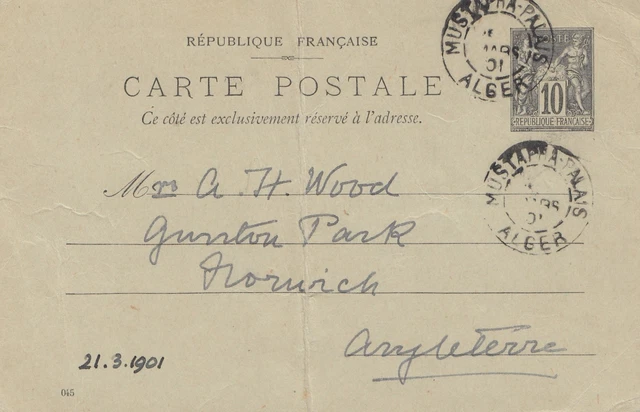 RÉPUBLIQUE FRANÇAISE
CARTE POSTALE
Ce côté est exclusivement réservé à l'adresse.
MUSTAPHA-PALAIS
MARS
01
ALGER
10
REPUBLIQUE FRANÇAISE
Mrs A. H. Wood
MUSTAPHA-PALAIS
MARS
01
ALGER
Gunton Park
Norwich
Angleterre
21.3.1901
045